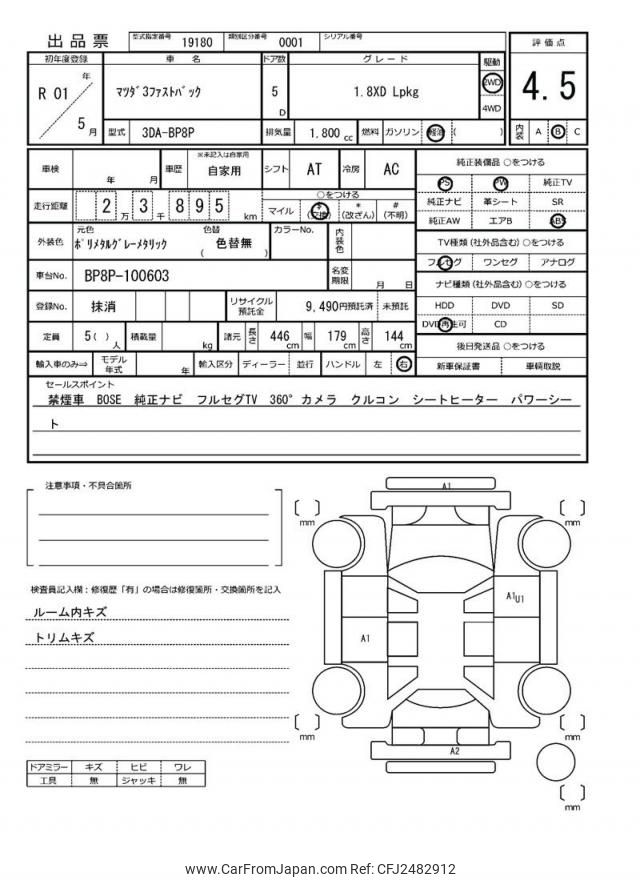 出品票 型式指定番号 19180 類別区分番号 0001 シリアル番号
初年度登録 車名 ドア数 グレード 駆動 評価点
R 01 年 5 月 マツダ3ファストバック 5 D 1.8XD Lpkg 2WD 4WD 4.5
型式 3DA-BP8P 排気量 1,800 cc 燃料 ガソリン 軽油 ( ) 内装 A B C
車検 年 月 車歴 ※未記入は自家用 自家用 シフト AT 冷房 AC
走行距離 2 万 3 千 8 9 5 km ○をつける
マイル $ (交換) * (改ざん) # (不明)
外装色 元色 ポリメタルグレーメタリック 色替 ( 色替無 ) カラーNo. 内装色
車台No. BP8P-100603 名変期限 月 日
登録No. 抹消 リサイクル預託金 9,490円預託済 未預託
定員 5( ) 人 積載量 kg 諸元 長さ 446 cm 幅 179 cm 高さ 144 cm
輸入車のみ⇒ モデル年式 年 輸入区分 ディーラー 並行 ハンドル 左 右
純正装備品 ○をつける
PS PW 純正TV
純正ナビ 革シート SR
純正AW エアB ABS
TV種類 (社外品含む) ○をつける
フルセグ ワンセグ アナログ
ナビ種類 (社外品含む) ○をつける
HDD DVD SD
DVD再生可 CD
後日発送品 ○をつける
新車保証書 車輌取説
セールスポイント
禁煙車 BOSE 純正ナビ フルセグTV 360°カメラ クルコン シートヒーター パワーシー
ト
注意事項・不具合箇所
検査員記入欄：修復歴「有」の場合は修復箇所・交換箇所を記入
ルーム内キズ
トリムキズ
ドアミラー キズ ヒビ ワレ
工具 無 ジャッキ 無
A1
mm
mm
A1
U1
A1
mm
mm
A2
mm
www.CarFromJapan.com Ref: CFJ2482912